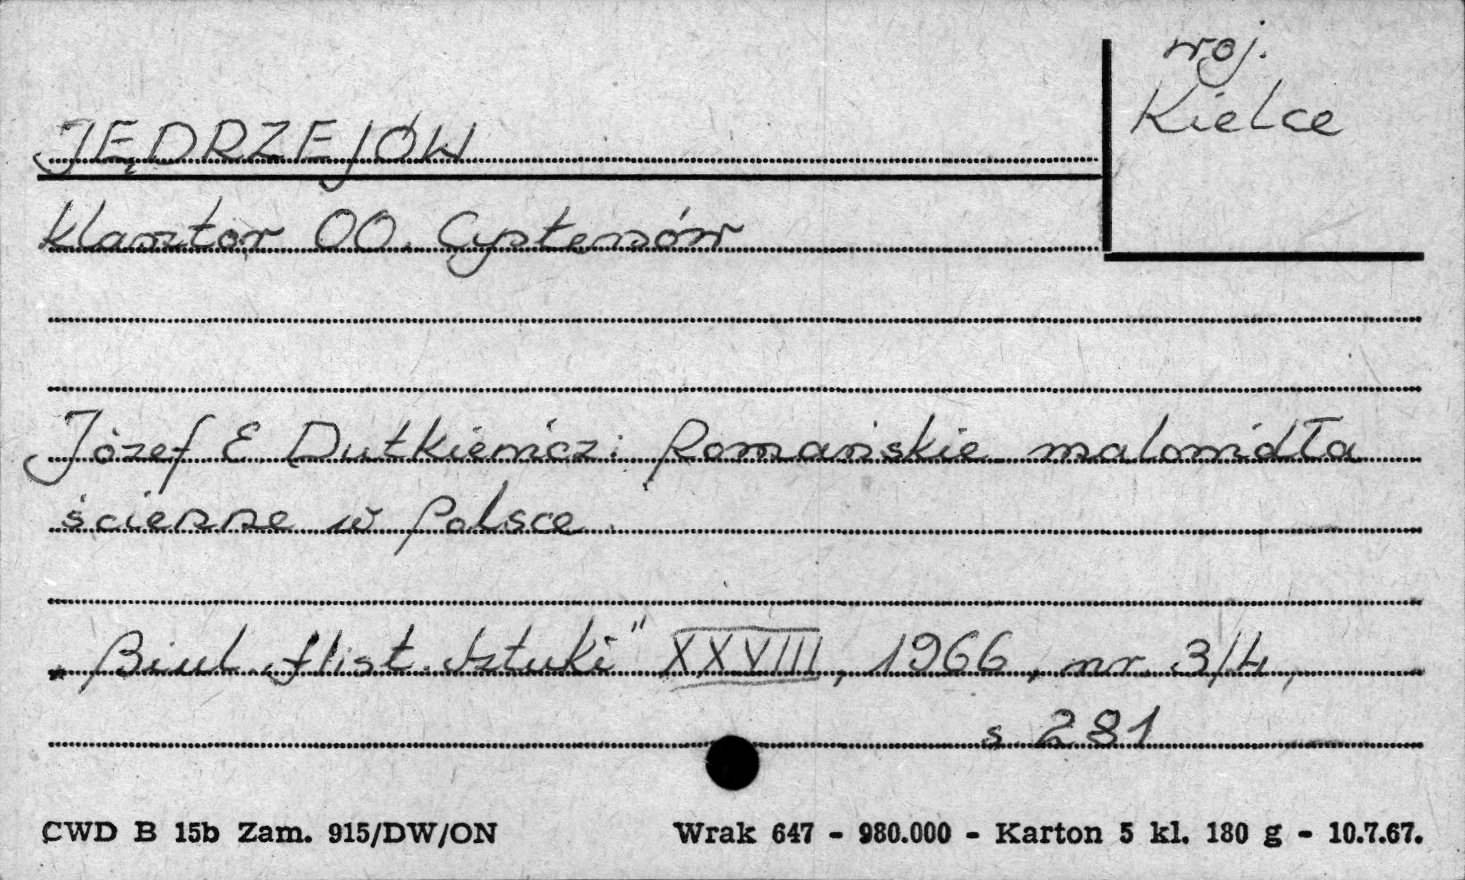 woj.
Kielce
JĘDRZEJÓW
Klasztor OO. Cystersów
Józef E. Dutkiewicz: Romańskie malowidła
ścienne w Polsce.
„Biul. Hist. Sztuki" XXVIII, 1966, nr 3/4,
s. 281
CWD B 15b Zam. 915/DW/ON
Wrak 647 - 980.000 - Karton 5 kl. 180 g - 10.7.67.